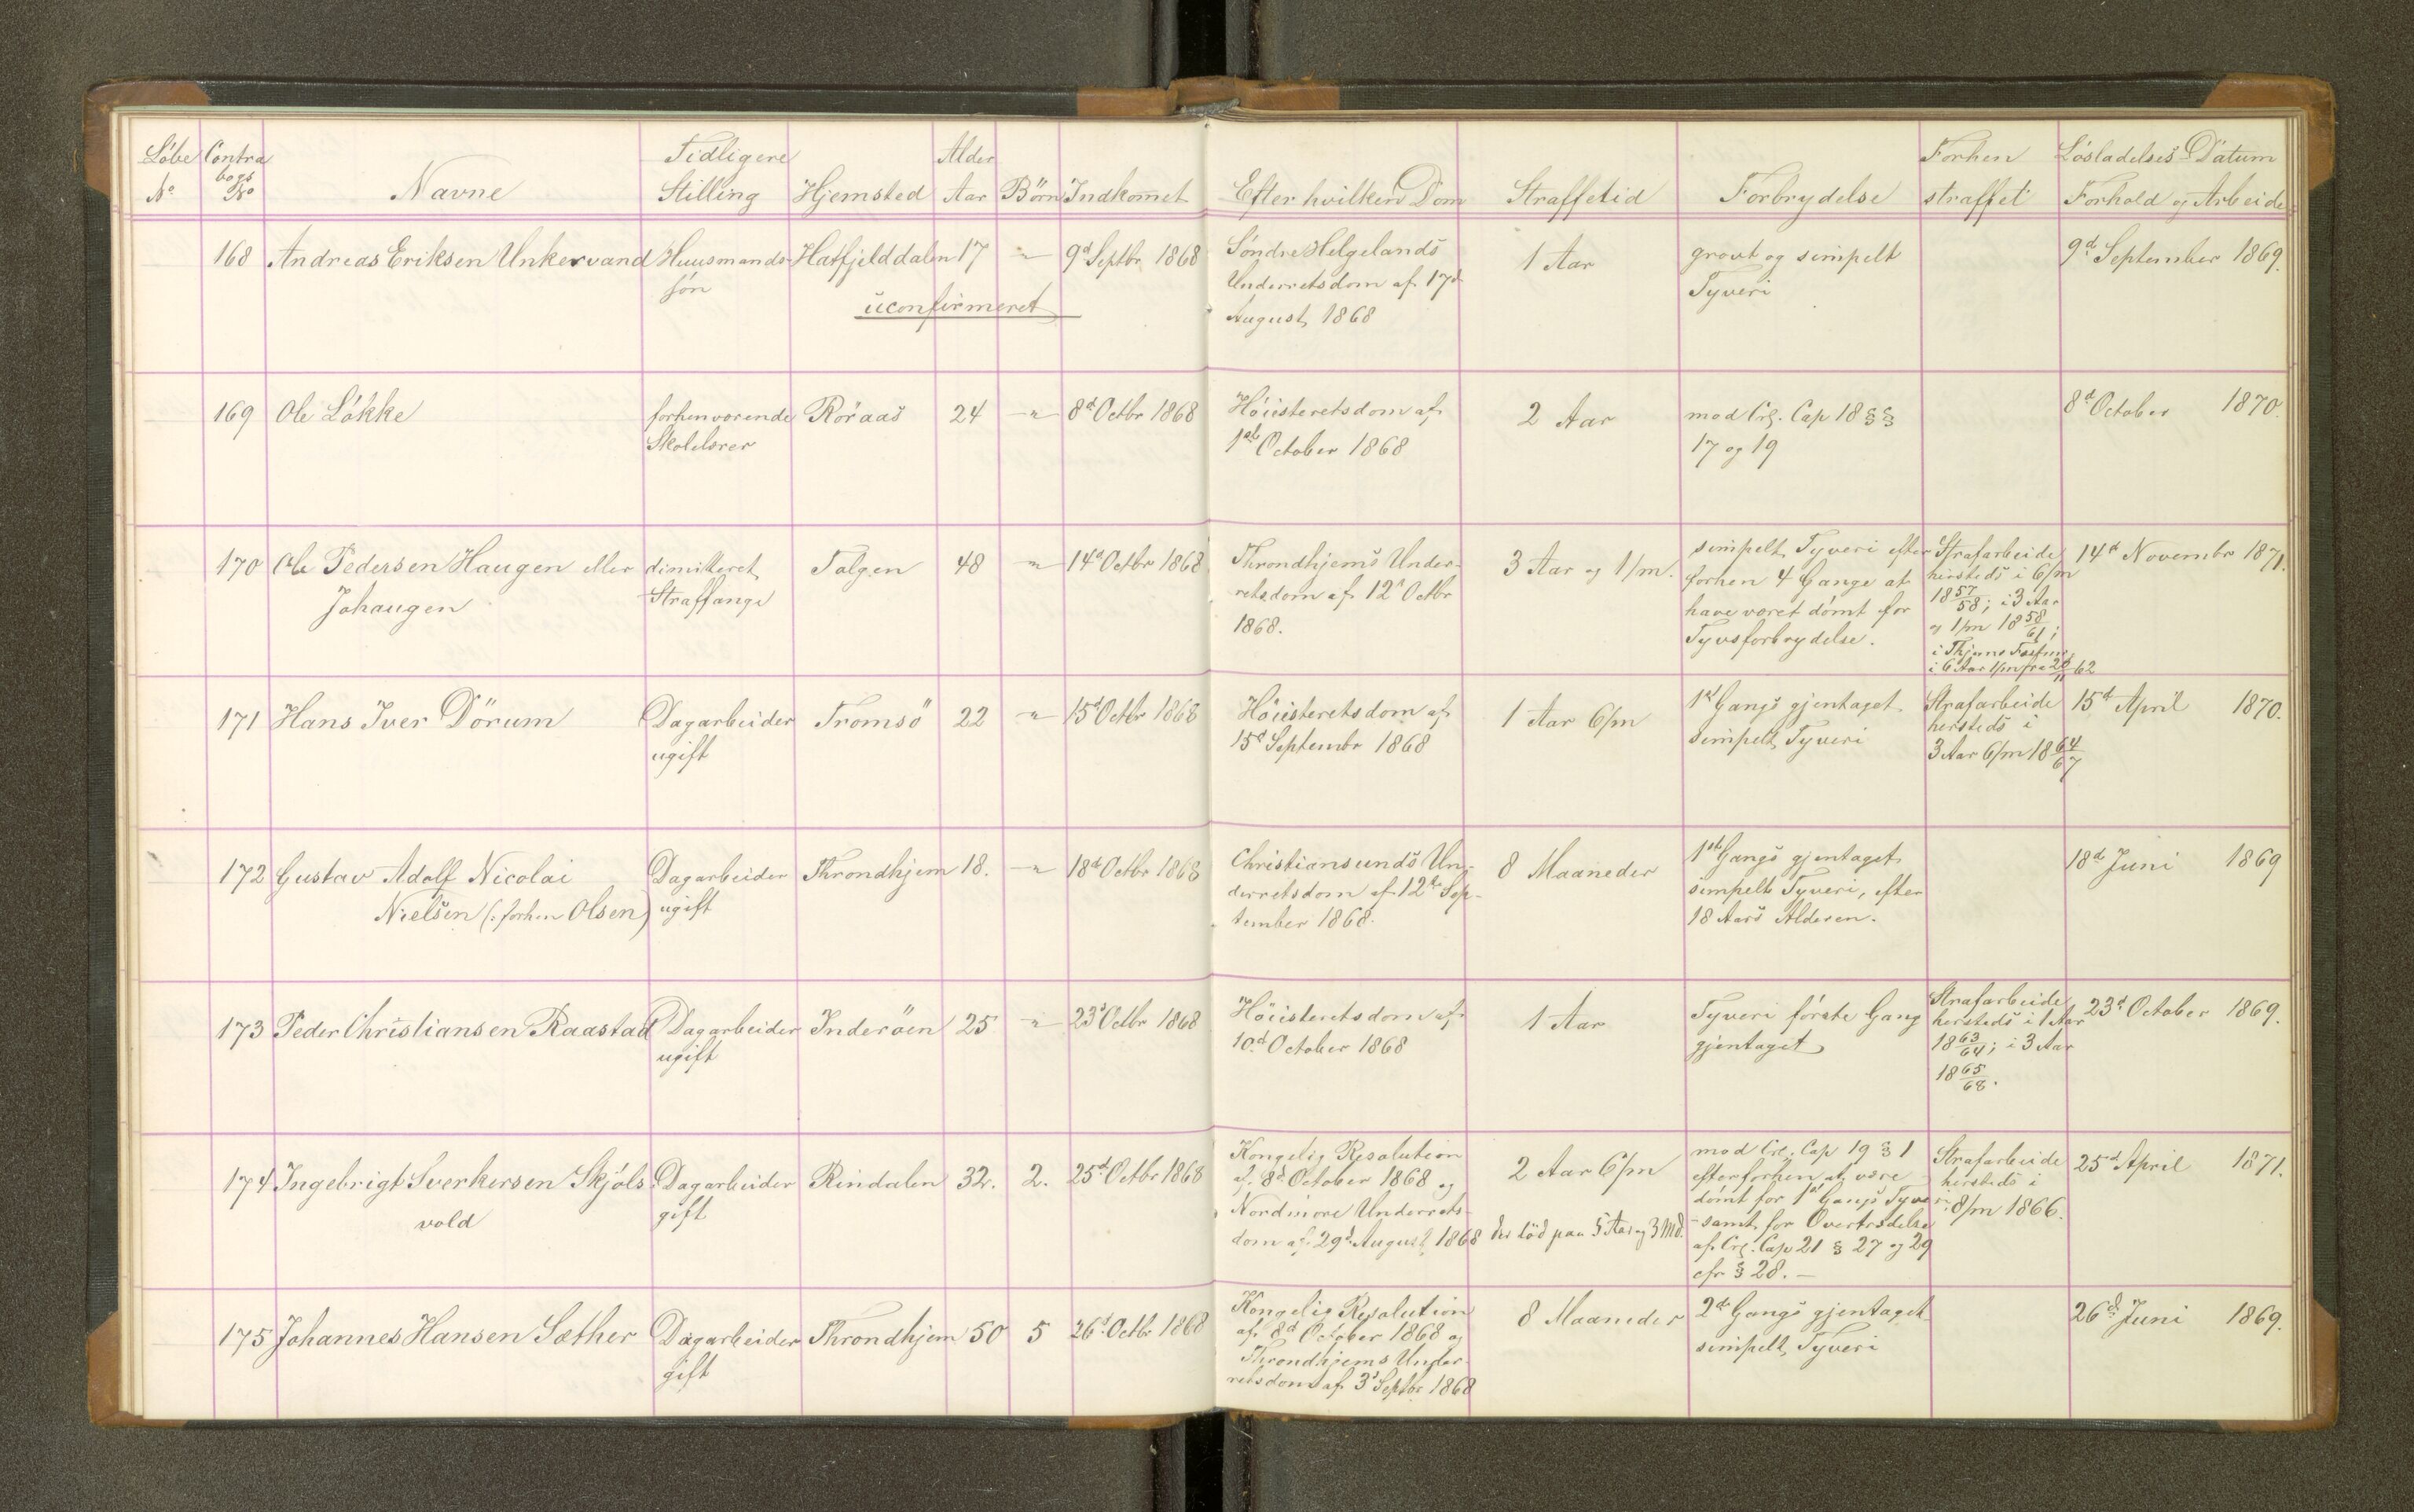 Løbe No Contrabogs No Navne Tidligere Stilling Hjemsted Alder Aar Börn Indkom̅et Efter hvilken Dom Straffetid Forbrydelse Forhen straffet Løsladelses-Datum Forhold og Arbeide
168 Andreas Eriksen Unkervand Huusmands- Hatfjelddalen 17 " 9d Septbr 1868 Søndre Helgelands 1 Aar grovt og simpelt 9d September 1869.
søn Underretsdom af 17d Tyveri
uconfirmeret August 1868
169 Ole Løkke forhenværende Röraas 24 " 8d Octbr 1868 Høiesteretsdom af 2 Aar mod Crl. Cap 18 §§ 8d October 1870.
Skolelærer 1st October 1868 17 og 19
170 Ole Pedersen Haugen eller dimitteret Tolgen 48 " 14d Octbr 1868 Throndhjems Under- 3 Aar og 1/m. simpelt Tyveri efter Strafarbeide 14d Novembr 1871.
Johaugen Straffange retsdom af 12d Octbr forhen 4 Gange at hersteds i 6/m
1868. have været dømt for 18 57/58; i 3 Aar
Tyvsforbrydelse. og 1/m 18 58/61;
i 6 Aar 1/m fra
171 Hans Iver Dörum Dagarbeider Tromsö 22 " 15d Octbr 1868 Høiesteretsdom af 1 Aar 6/m 1st Gangs gjentaget Strafarbeide 15d April 1870.
ugift 15d Septembr 1868 simpelt Tyveri hersteds i
3 Aar 6/m 18 64/67
172 Gustav Adolf Nicolai Dagarbeider Throndhjem 18. " 18d Octbr 1868 Christiansunds Un- 8 Maaneder 1st Gangs gjentaget 18d Juni 1869
Nielsen (: forhen Olsen) ugift derretsdom af 12te Sep- simpelt Tyveri, efter
tember 1868. 18 Aars Alderen.
173 Peder Christiansen Raastad Dagarbeider Inderöen 25 " 23d Octbr 1868 Höiesteretsdom af 1 Aar Tyveri første Gang Strafarbeide 23d October 1869.
ugift 10d October 1868 gjentaget hersteds i 1 Aar
18 63/64; i 3 Aar
18 65/68.
174 Ingebrigt Sverkersen Skjøls- Dagarbeider Rindalen 32. 2. 25d Octbr 1868 Kongelig Resolution 2 Aar 6/m mod Crl. Cap 19 § 1 Strafarbeide 25d April 1871.
vold gift af 8d October 1868 og efter forhen at være hersteds i
Nordmøre Underrets- dømt for 1st Gangs Tyveri 8/m 1866.
dom af 29d August 1868 der lød paa 5 Aar og 3 Md. samt for Overtrædelse
af Crl. Cap 21 § 27 og 29
cfr § 28. —
175 Johannes Hansen Sæther Dagarbeider Throndhjem 50 5 26d Octbr 1868 Kongelig Resolution 8 Maaneder 2d Gangs gjentaget 26d Juni 1869.
gift af 8d October 1868 og simpelt Tyveri
Throndhjems Under-
retsdom af 3d Septbr 1868